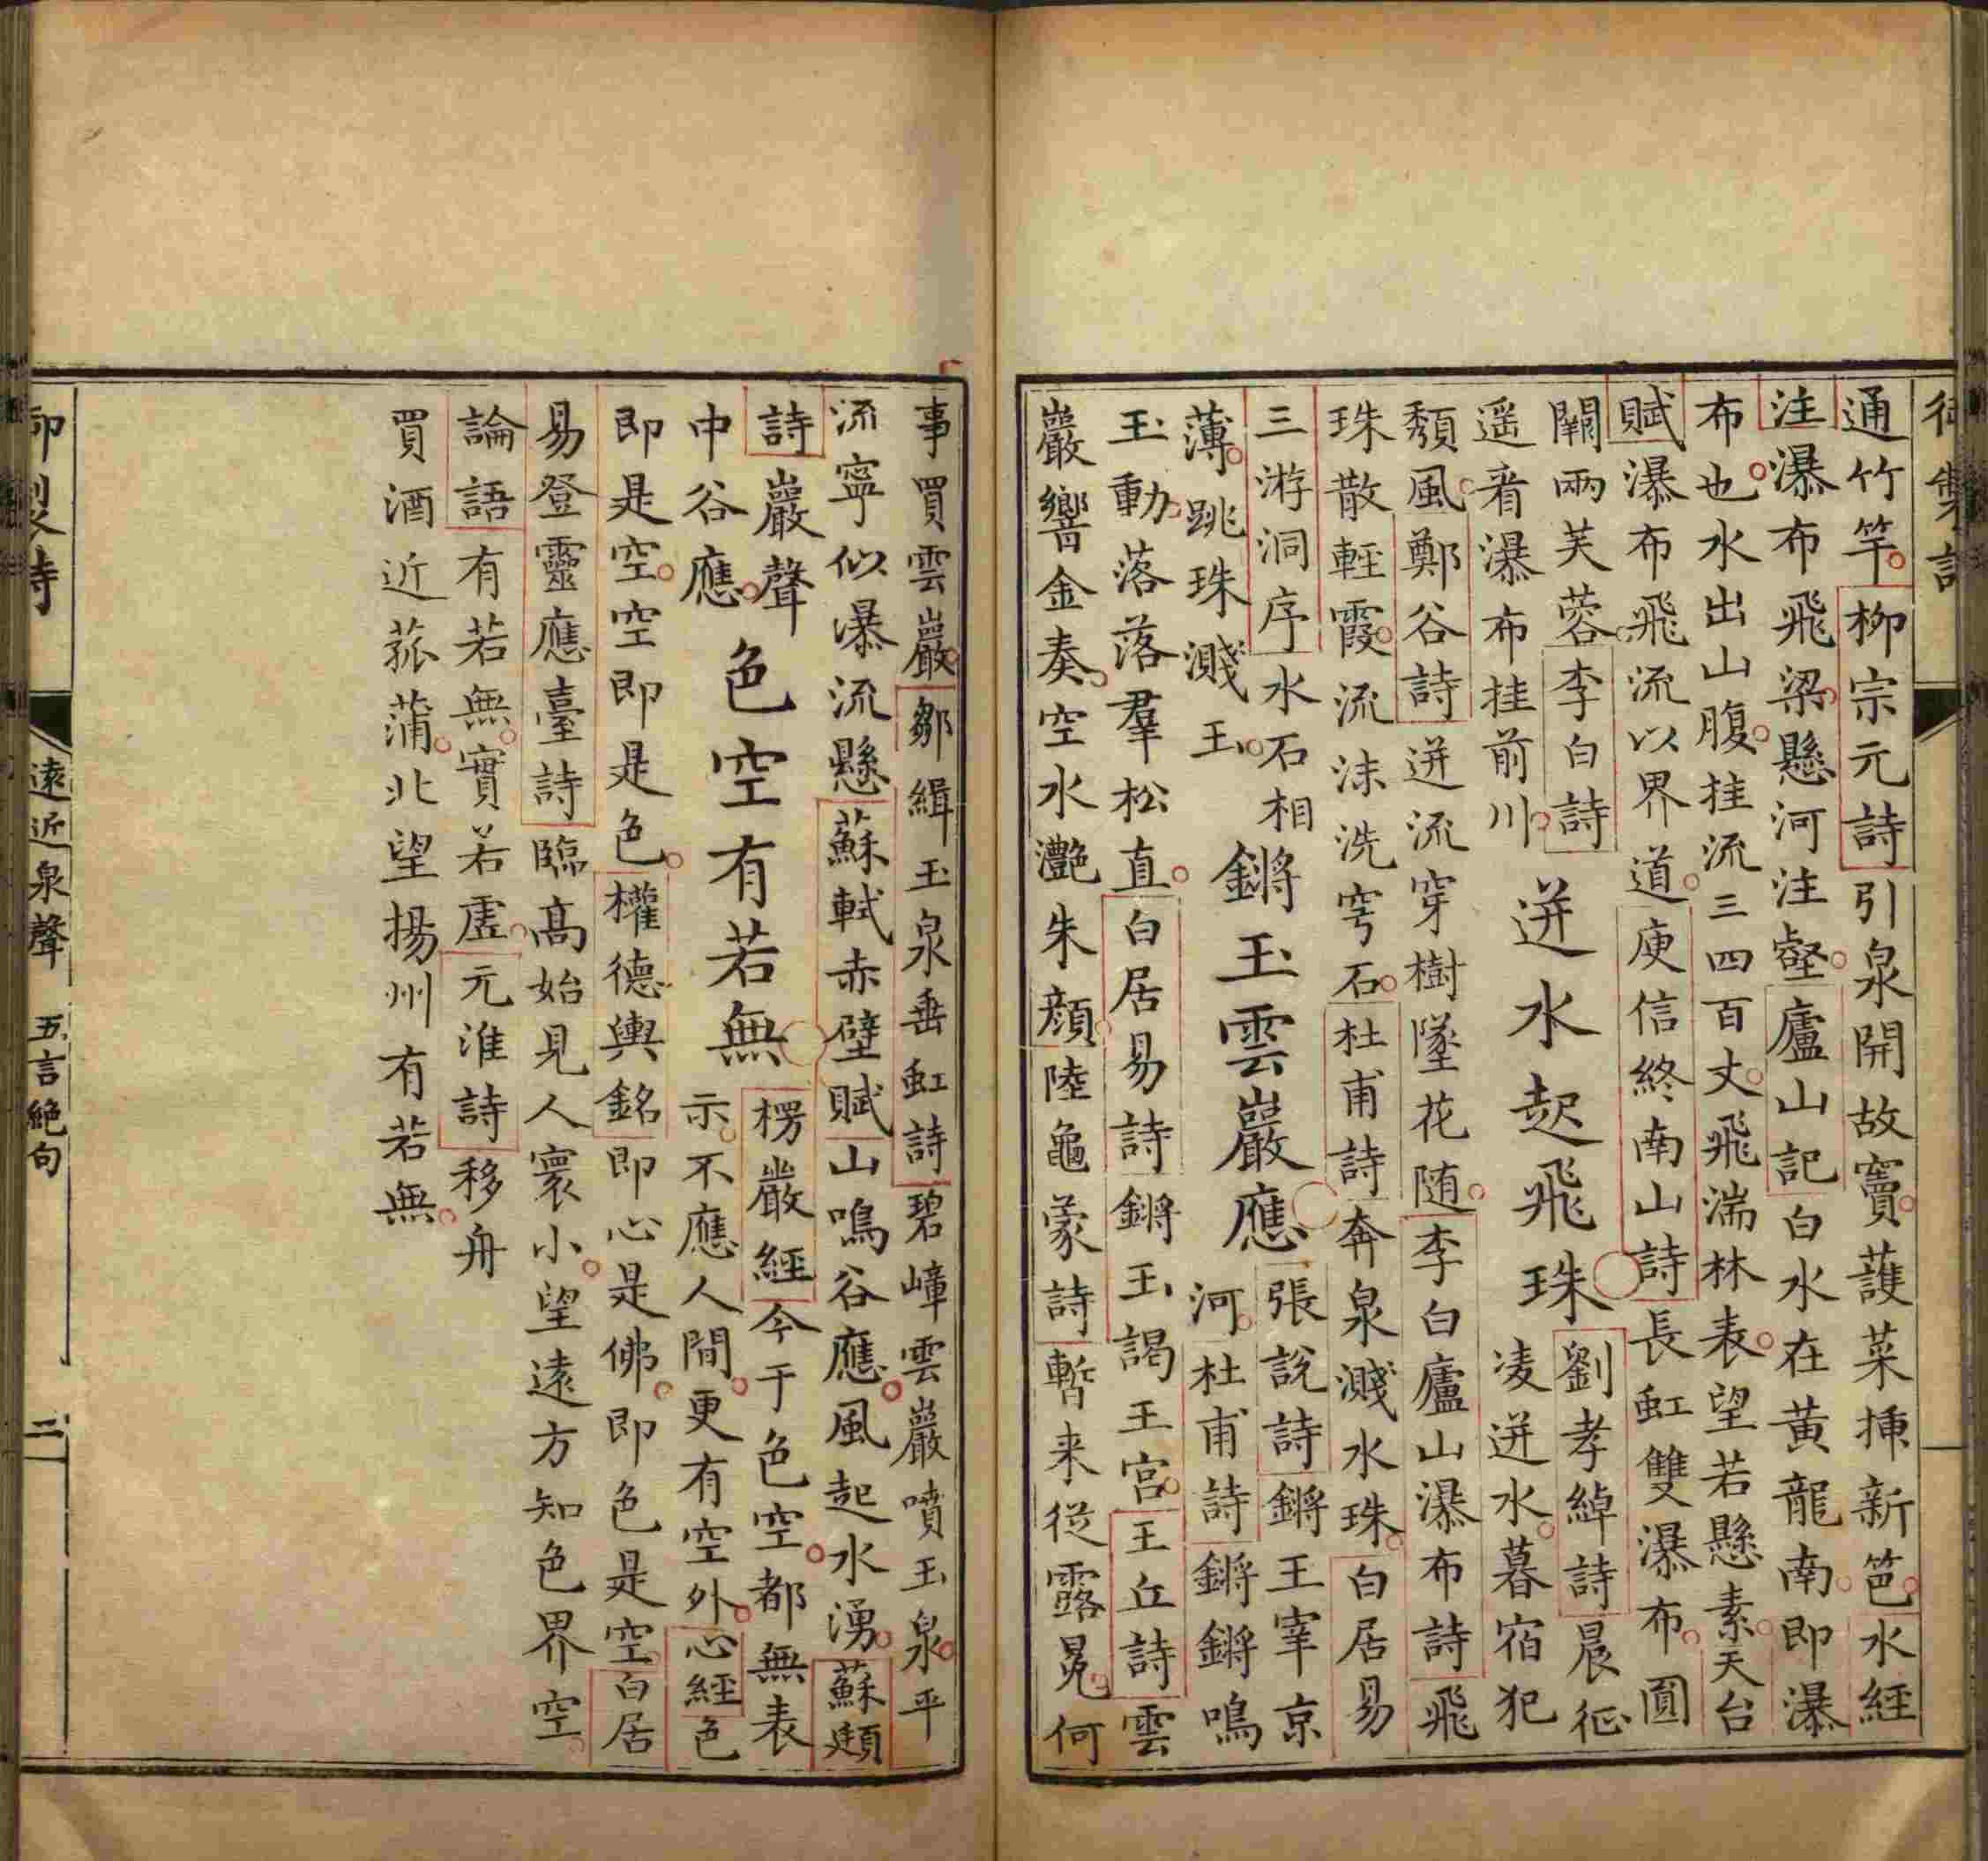 御製詩
通竹竿柳宗元詩引泉開故竇護菜揷新笆水經
注瀑布飛梁懸河注壑廬山記白水在黃龍南即瀑
布也水出山腹挂流三四百丈飛湍林表望若懸素天台
賦瀑布飛流以界道庾信終南山詩長虹雙瀑布圓
闕兩芙蓉李白詩
遥看瀑布挂前川
迸水起飛珠
劉孝綽詩晨征
凌迸水暮宿犯
頹風鄭谷詩迸流穿樹墜花随李白廬山瀑布詩飛
珠散輕霞流沫洗穹石杜甫詩奔泉濺水珠白居易
三游洞序水石相
薄跳珠濺玉
鏘玉雲巖應
張說詩鏘王宰京
河杜甫詩鏘鏘鳴
玉動落落羣松直白居易詩鏘玉謁王宮王丘詩雲
巖響金奏空水灔朱顔陸龜蒙詩暫来從露冕何
事買雲巖鄒緝玉泉垂虹詩碧嶂雲巖噴玉泉平
流寧似瀑流懸蘇軾赤壁賦山鳴谷應風起水湧蘇頲
詩巖聲
中谷應
色空有若無
楞嚴經今于色空都無表
示不應人間更有空外心經色
即是空空即是色權德輿銘即心是佛即色是空白居
易登靈應臺詩臨高始見人寰小望遠方知色界空
論語有若無實若虛元淮詩移舟
買酒近菰蒲北望揚州有若無
御製詩 遠近泉聲 五言絕句 二